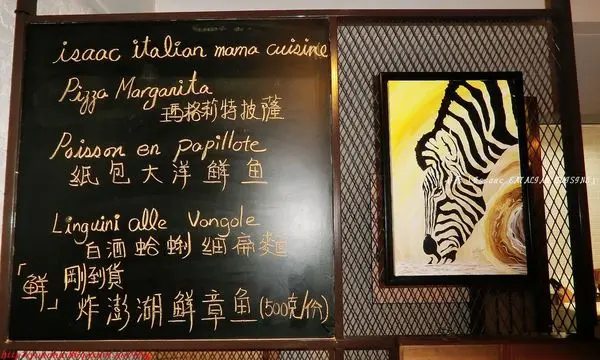 isaac italian mama cuisine
Pizza Margarita
瑪格莉特披薩
Poisson en papillote
紙包大洋鮮魚
Linguini alle Vongole
白酒蛤蜊細扁麵
「鮮」剛到貨
炸澎湖鮮章魚(500克/份)